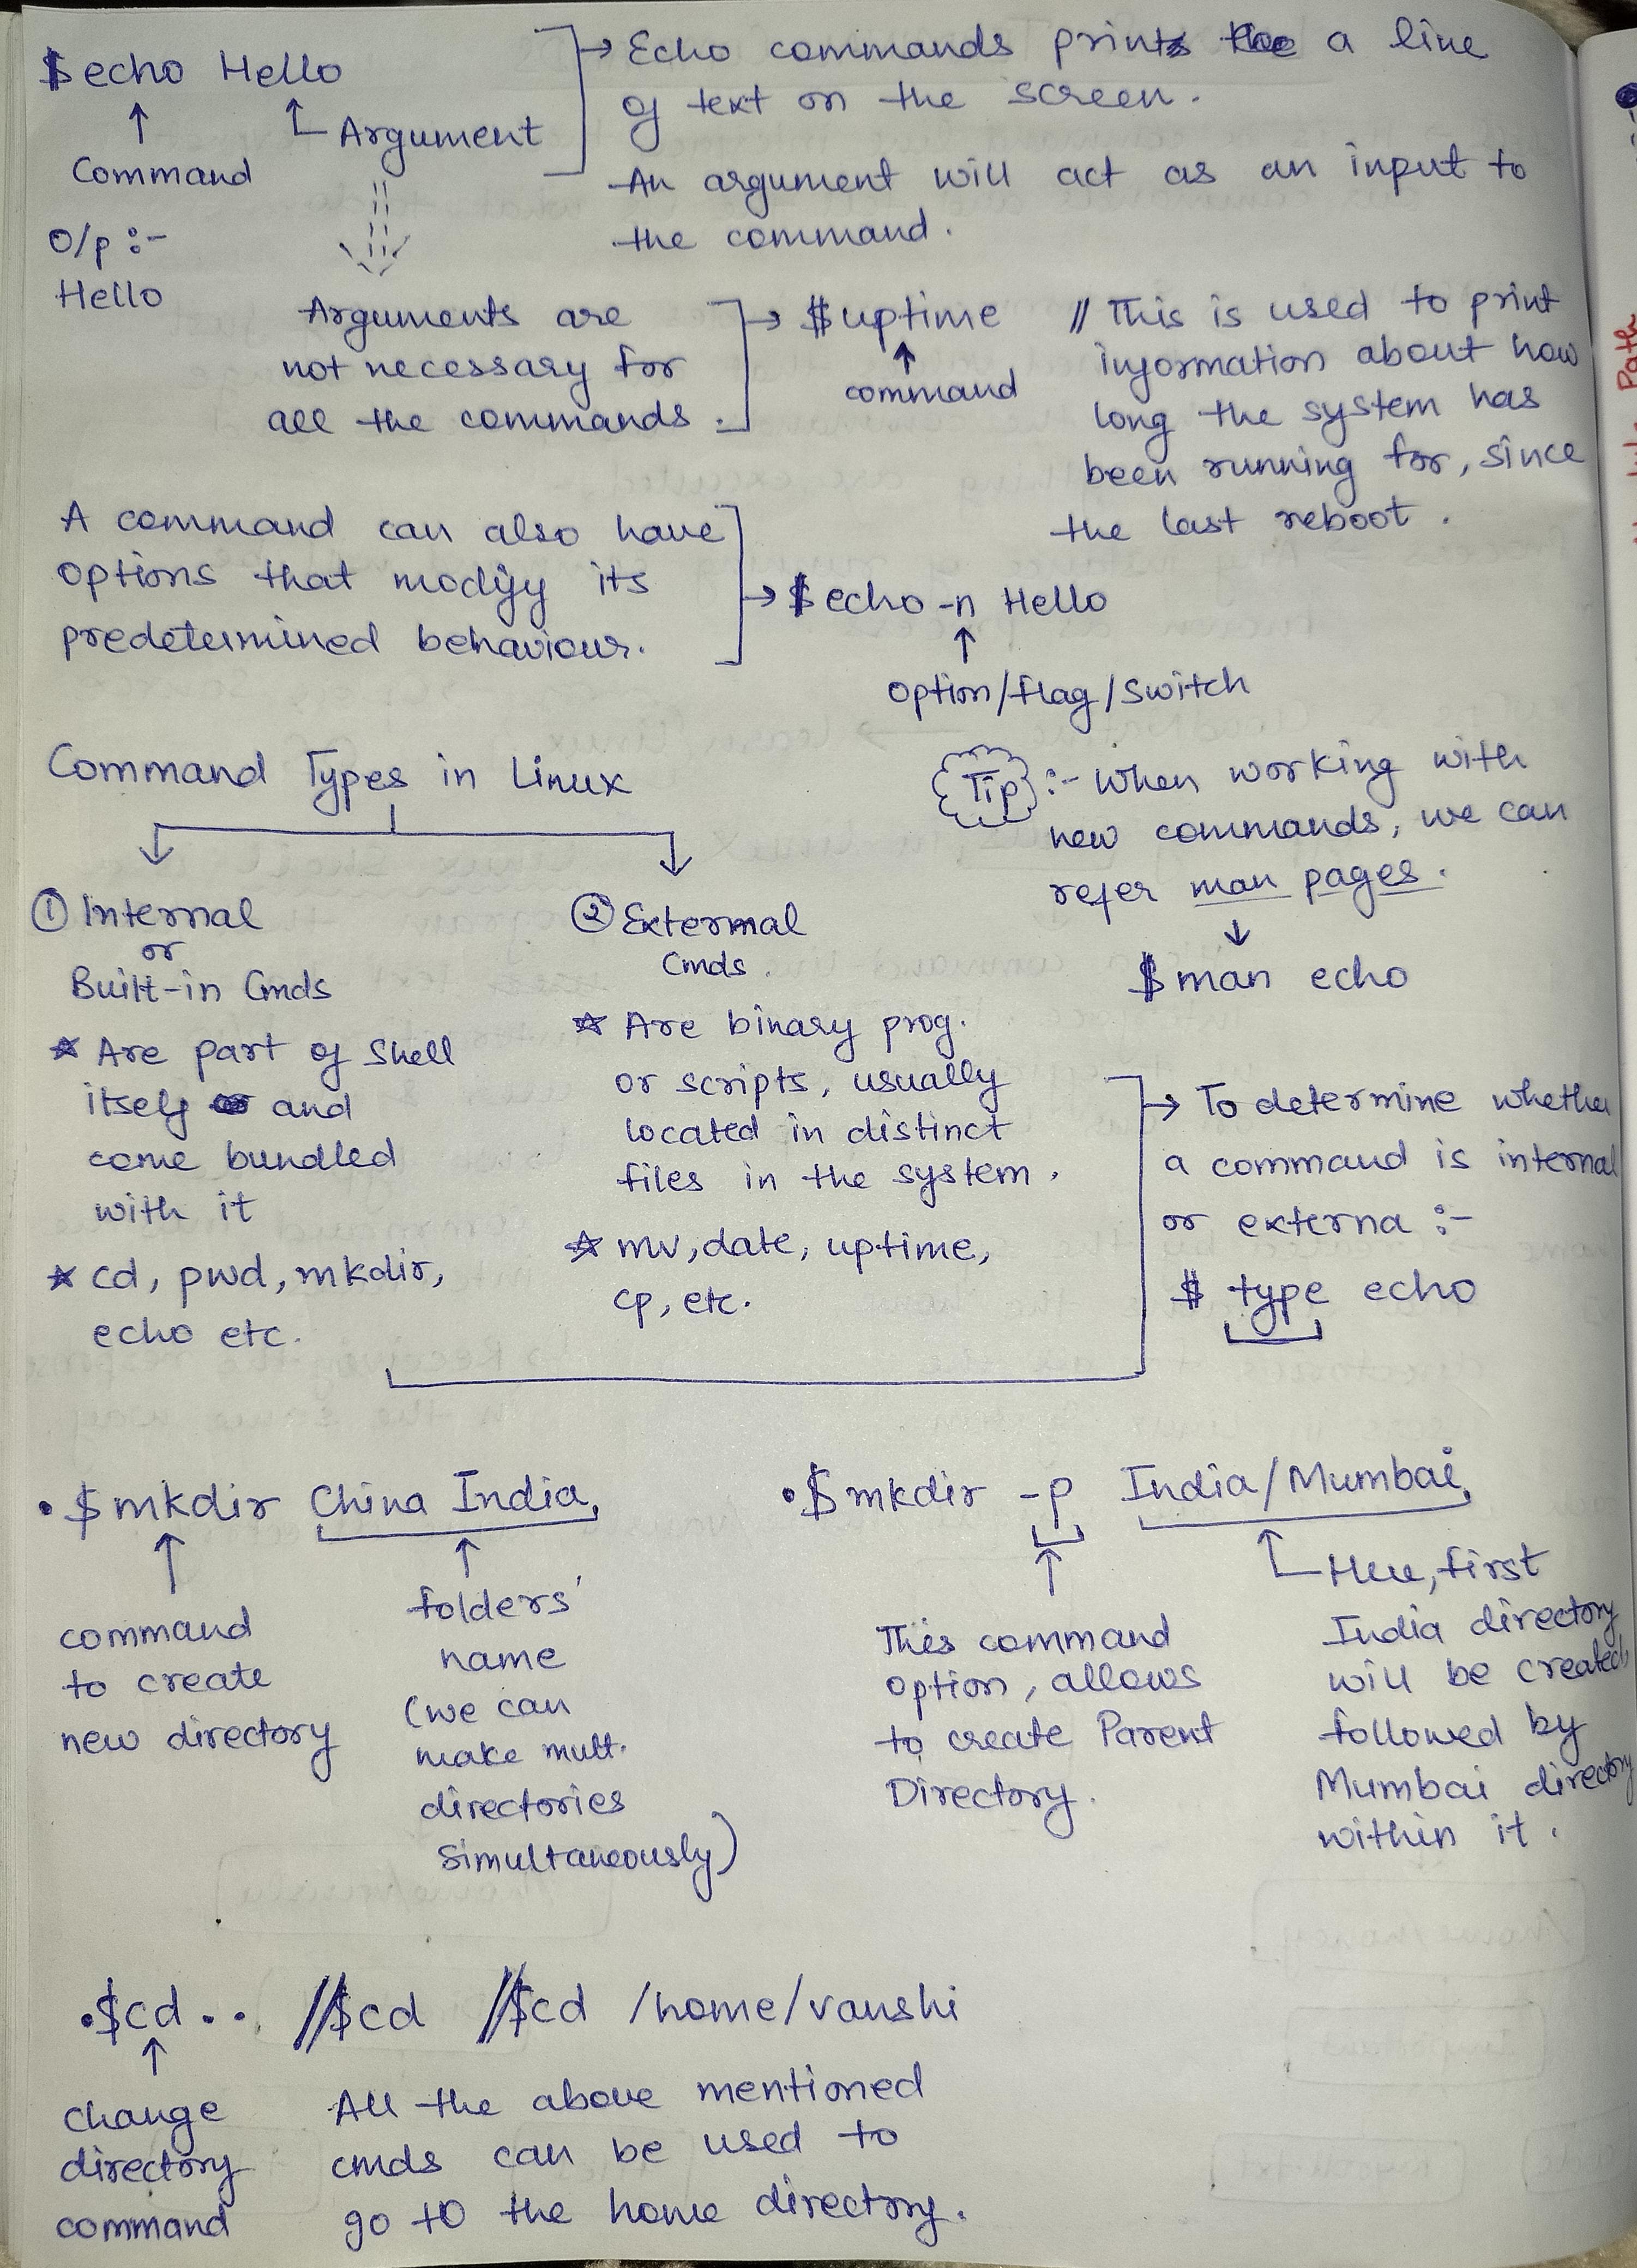 $ echo Hello
Command
Argument
O/p :-
Hello
→ Echo commands prints a line
of text on the screen.
An argument will act as an input to
the command.
Arguments are
not necessary for
all the commands.
→ $ uptime
command
// This is used to print
information about how
long the system has
been running for, since
the last reboot.
A command can also have
options that modify its
predetermined behaviour.
→ $ echo -n Hello
option/flag/switch
Command Types in Linux
① Internal
or
Built-in Cmds
☆ Are part of Shell
itself and
come bundled
with it
☆ cd, pwd, mkdir,
echo etc.
② External
Cmds.
☆ Are binary prog.
or scripts, usually
located in distinct
files in the system.
☆ mv, date, uptime,
cp, etc.
Tip :- When working with
new commands, we can
refer man pages.
↓
$ man echo
→ To determine whether
a command is internal
or externa :-
$ type echo
• $ mkdir China India
command
to create
new directory
folders'
name
(we can
make mult.
directories
simultaneously)
• $ mkdir -p India/Mumbai
This command
option, allows
to create Parent
Directory.
Here, first
India directory
will be created,
followed by
Mumbai directory
within it.
• $cd .. // $cd // $cd /home/vanshi
change
directory
command
All the above mentioned
cmds can be used to
go to the home directory.
Path